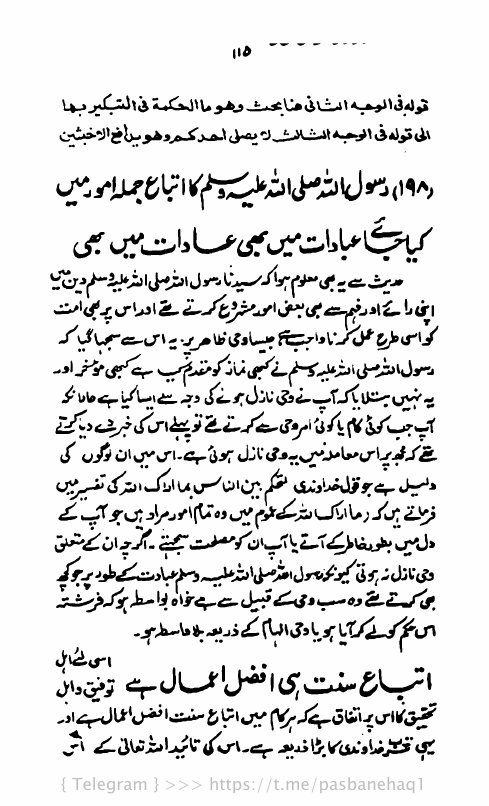 ۱۱۵
قوله فی الوجه الثانی هنا بحث وهو ما الحكمة فی التبكير بها
الی قوله فی الوجه الثالث لا يصلی احدكم وهو يدافع الاخبثين
(۱۹۸) رسول اللہ صلی اللہ علیہ وسلم کا اتباع جملہ امور میں
کیا جائے عبادات میں بھی عادات میں بھی
حدیث سے یہ بھی معلوم ہوا کہ سیدنا رسول اللہ صلی اللہ علیہ وسلم دین میں
اپنی رائے اور فہم سے بھی بعض امور مشروع کرتے تھے اور اس پر بھی امت
کو اسی طرح عمل کرنا واجب ہے جیسا وحی ظاہر پر۔ یہ اس سے سمجھا گیا کہ
رسول اللہ صلی اللہ علیہ وسلم نے کبھی نماز کو مقدم کیا ہے کبھی مؤخر اور
یہ نہیں بتلایا کہ آپ نے وحی نازل ہونے کی وجہ سے ایسا کیا ہے حالانکہ
آپ جب کوئی کام یا کوئی امر وحی سے کرتے تھے تو پہلے اس کی خبر دے دیا کرتے
تھے کہ مجھ پر اس معاملہ میں یہ وحی نازل ہوئی ہے۔ اس میں ان لوگوں کی
دلیل ہے جو قول خداوندی لتحکم بین الناس بما اراک اللہ کی تفسیر میں
فرماتے ہیں کہ (ما اراک اللہ کے عموم میں وہ تمام امور مراد ہیں جو آپ کے
دل میں بطور خاطر کے آتے یا آپ ان کو مصلحت سمجھتے۔ اگرچہ ان کے متعلق
وحی نازل نہ ہوتی کیونکہ رسول اللہ صلی اللہ علیہ وسلم عبادت کے طور پر جو کچھ
بھی کرتے تھے وہ سب وحی کے قبیل سے ہے خواہ بواسطہ ہو کہ فرشتہ
اس حکم کو لے کر آیا ہو یا وحی الہام کے ذریعہ بلا واسطہ ہو۔
اتباع سنت ہی افضل اعمال ہے اسی لئے اہل توفیق و اہل
تحقیق کا اس پر اتفاق ہے کہ ہر کام میں اتباع سنت افضل اعمال ہے اور
یہی قرب خداوندی کا بڑا ذریعہ ہے۔ اس کی تائید اللہ تعالیٰ کے اس
{ Telegram } >>> https://t.me/pasbanehaq1